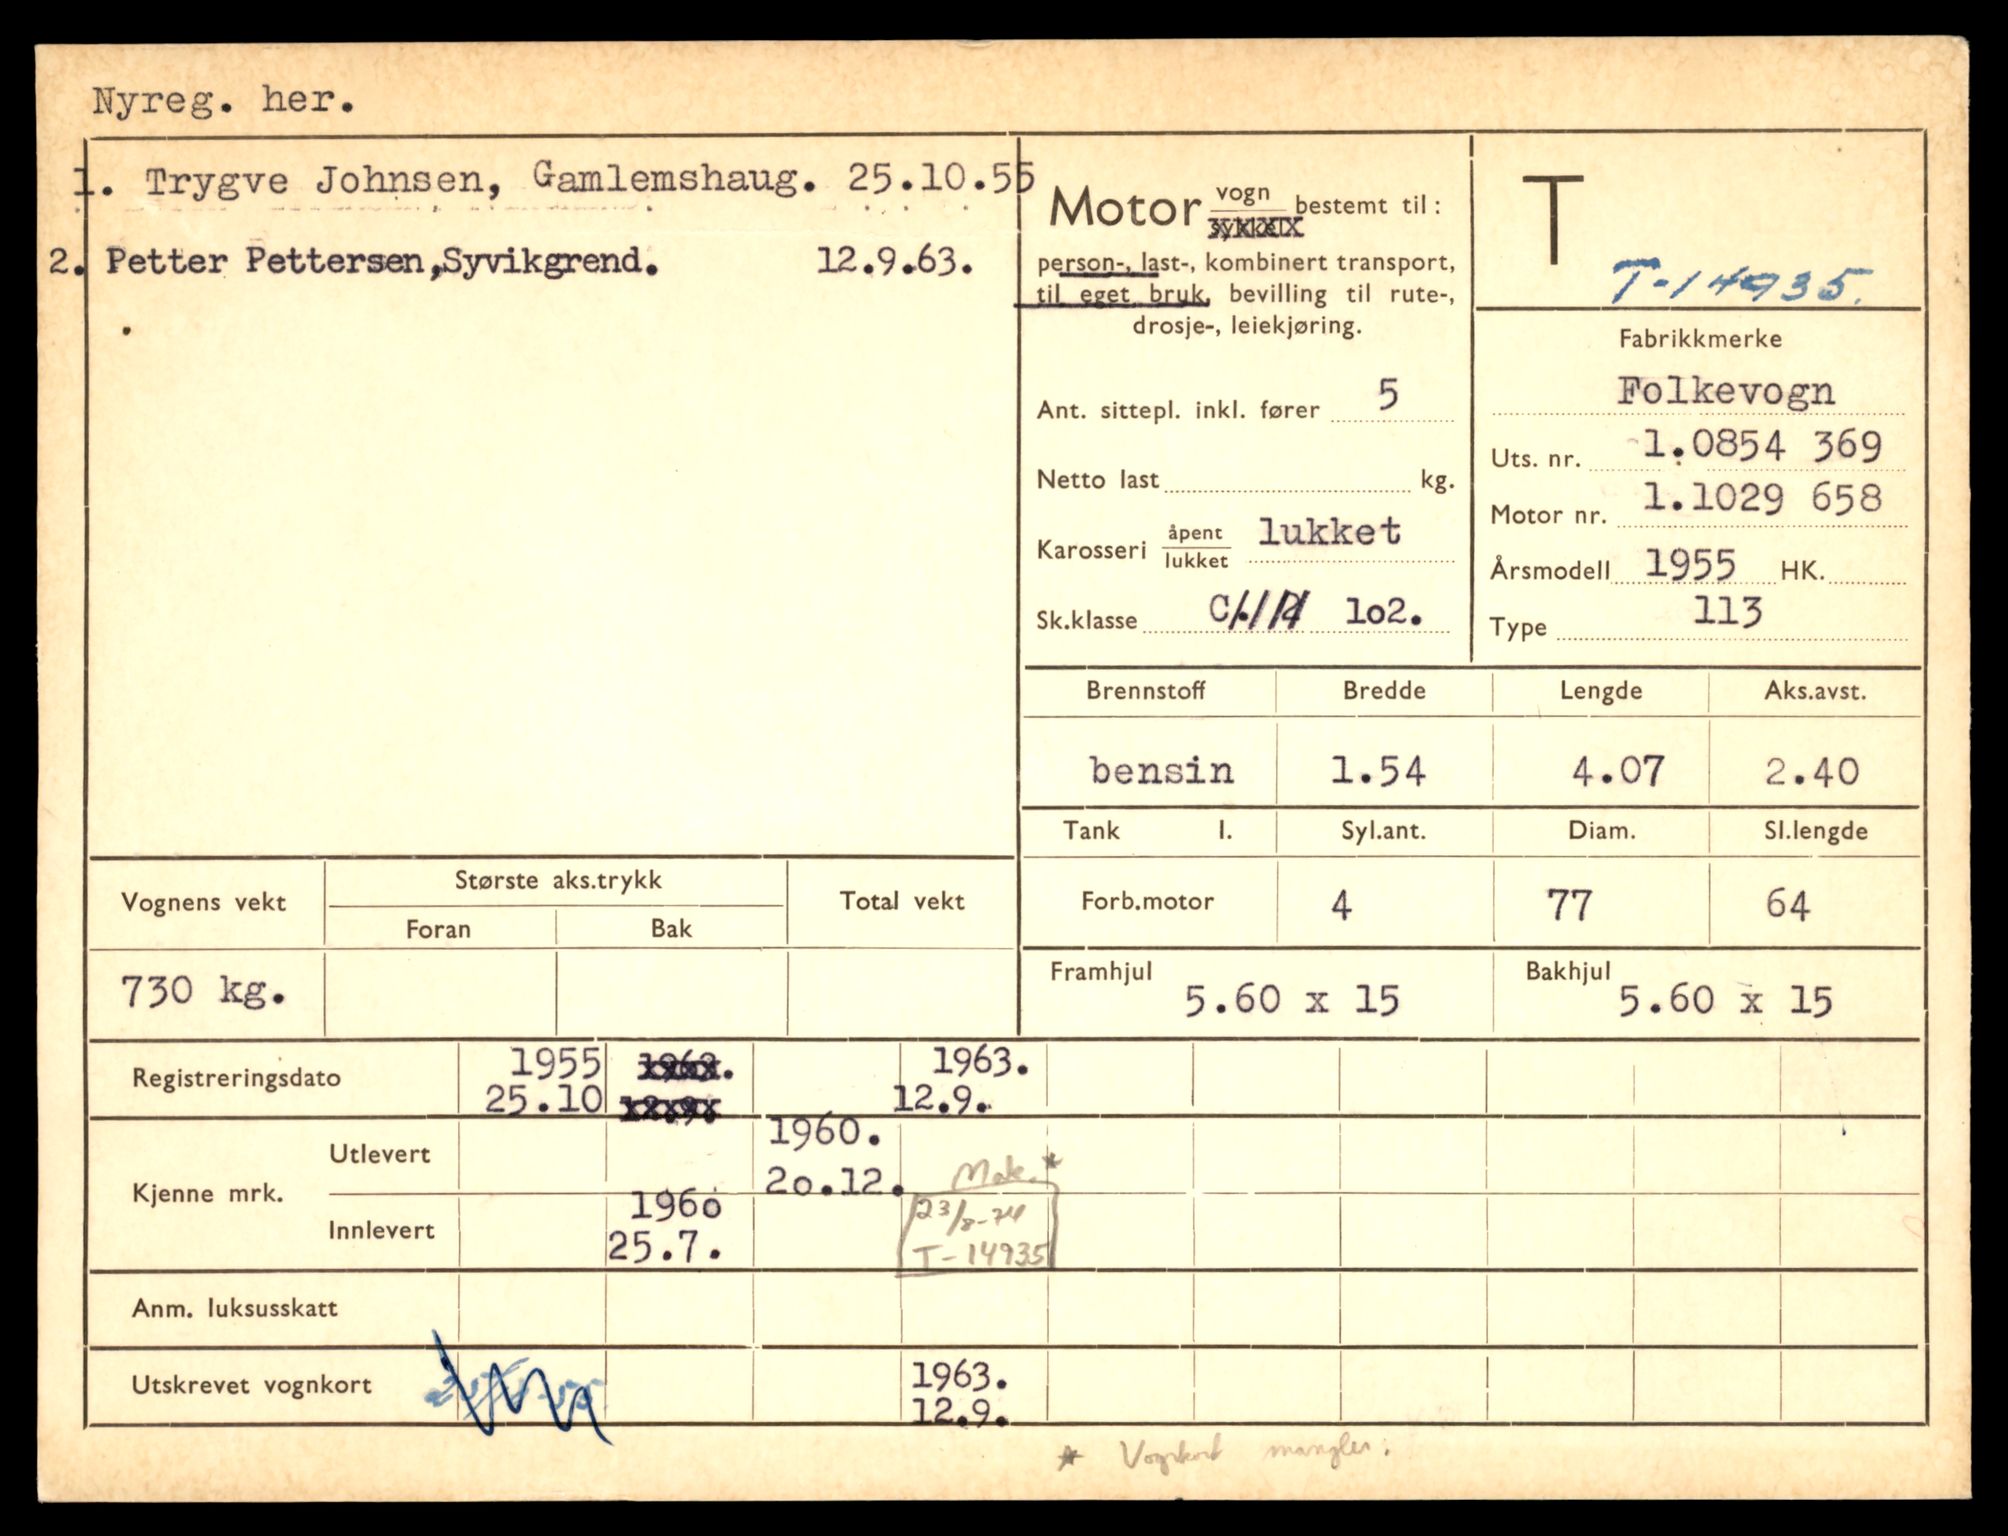 Nyreg. her.
1. Trygve Johnsen, Gamlemshaug. 25.10.55
2. Petter Pettersen, Syvikgrend. 12.9.63.
Motor vogn bestemt til:
sykkel
person-, last-, kombinert transport,
til eget bruk, bevilling til rute-,
drosje-, leiekjøring.
Ant. sittepl. inkl. fører 5
Netto last kg.
Karosseri åpent lukket
lukket
Sk.klasse 1o2.
T
T-14935.
Fabrikkmerke
Folkevogn
Uts. nr. 1.0854 369
Motor nr. 1.1029 658
Årsmodell 1955 HK.
Type 113
Brennstoff Bredde Lengde Aks.avst.
bensin 1.54 4.07 2.40
Tank l. Syl.ant. Diam. Sl.lengde
Forb.motor 4 77 64
Framhjul 5.60 x 15 Bakhjul 5.60 x 15
Vognens vekt Største aks.trykk Total vekt
Foran Bak
730 kg.
Registreringsdato 1955 1963. 1963.
25.10 12.9. 12.9.
Kjenne mrk. Utlevert 1960.
2o.12.
Innlevert 196o
25.7.
Mak. *
23/8-74
T-14935
Anm. luksusskatt
Utskrevet vognkort 1963.
12.9.
* Vognkort mangler.